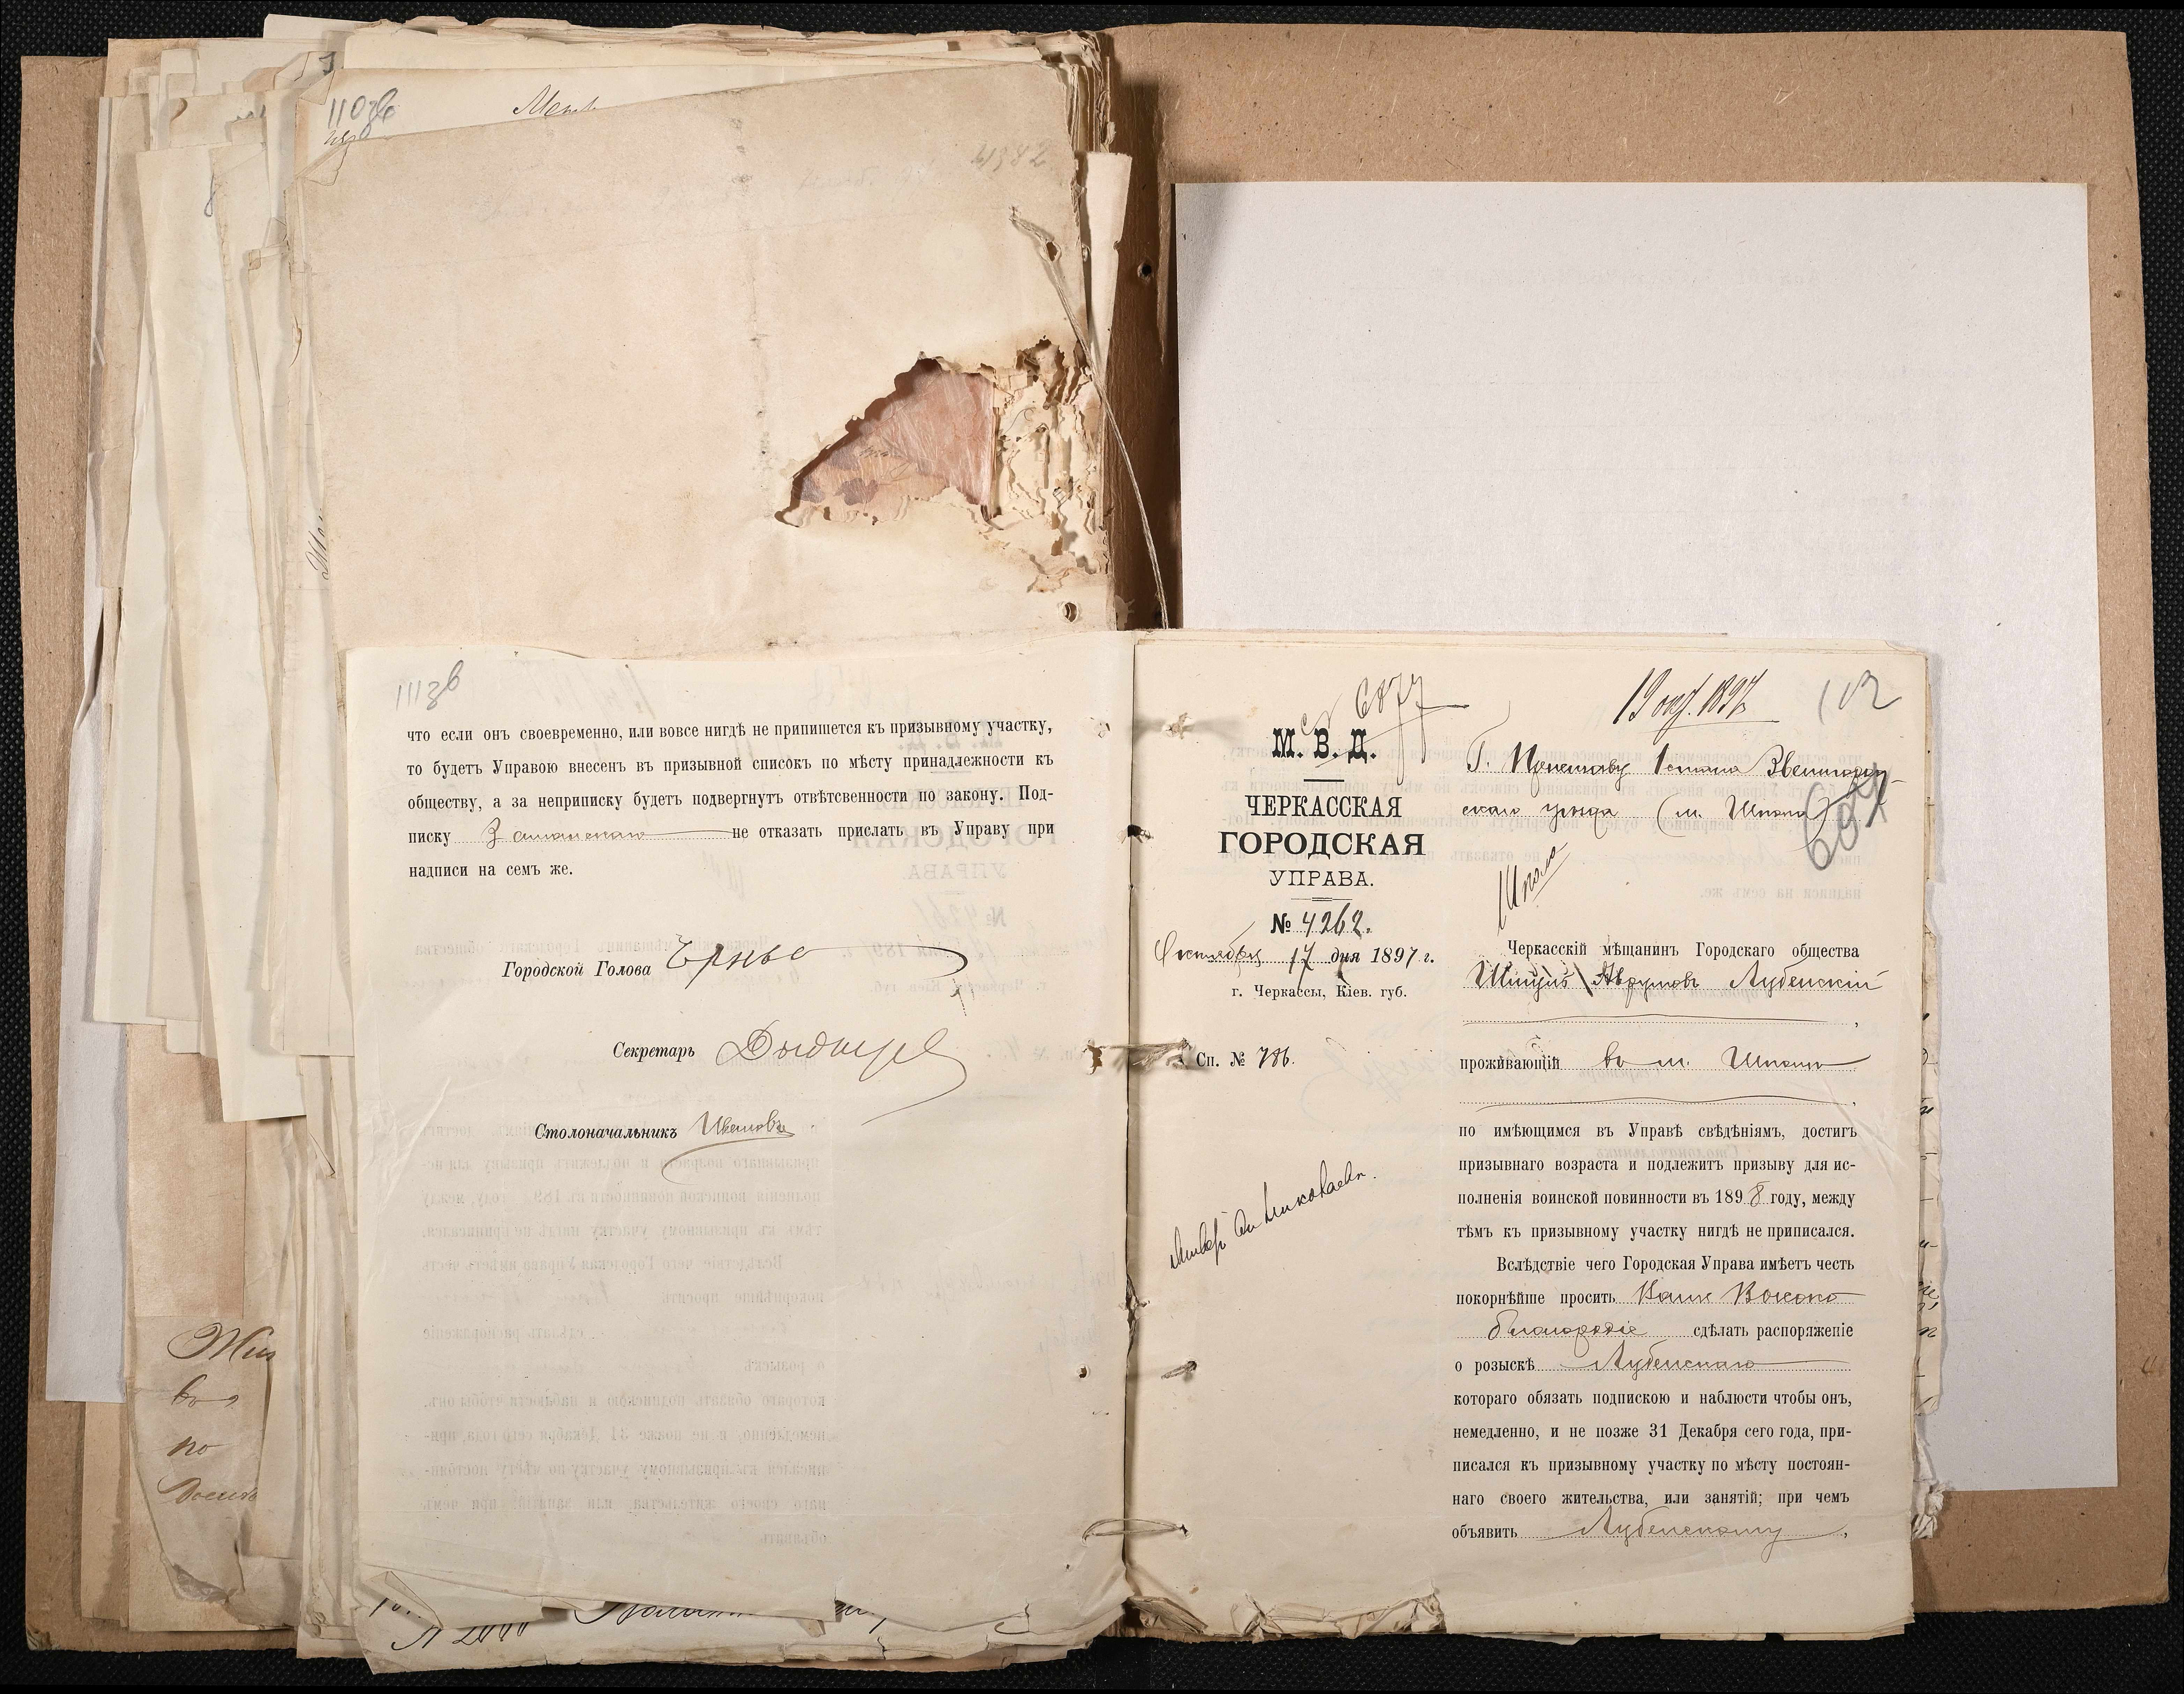 111зв
что если онъ своевременно, или вовсе нигдѣ не припишется къ призывному участку,
то будетъ Управою внесенъ въ призывной списокъ по мѣсту принадлежности къ
обществу, а за неприписку будетъ подвергнутъ отвѣтсвенности по закону. Под-
писку не отказать прислать въ Управу при
надписи на семъ же.
Городской Голова
Секретарь
Столоначальникъ Ивановъ
6877
19 окт. 1897
112
М. В. Д.
ЧЕРКАССКАЯ
ГОРОДСКАЯ
УПРАВА.
№ 4262.
Октября 17 дня 1897 г.
г. Черкассы, Кіев. губ.
Сп. № 786.
Г. Приставу 1 стана Звенигород-
скаго уѣзда (м. Шпола)
Шпола
Черкасскій мѣщанинъ Городскаго общества
Шицулъ Аврумовъ Лубенскій
,
проживающій въ м. Шполѣ
,
по имѣющимся въ Управѣ свѣдѣніямъ, достигъ
призывнаго возраста и подлежитъ призыву для ис-
полненія воинской повинности въ 1898 году, между
тѣмъ къ призывному участку нигдѣ не приписался.
Вслѣдствіе чего Городская Управа имѣетъ честь
покорнѣйше просить Ваше Высоко
благородіе сдѣлать распоряженіе
о розыскѣ Лубенскаго
котораго обязать подпискою и наблюсти чтобы онъ,
немедленно, и не позже 31 Декабря сего года, при-
писался къ призывному участку по мѣсту постоян-
наго своего жительства, или занятій; при чемъ
объявить Лубенскому,